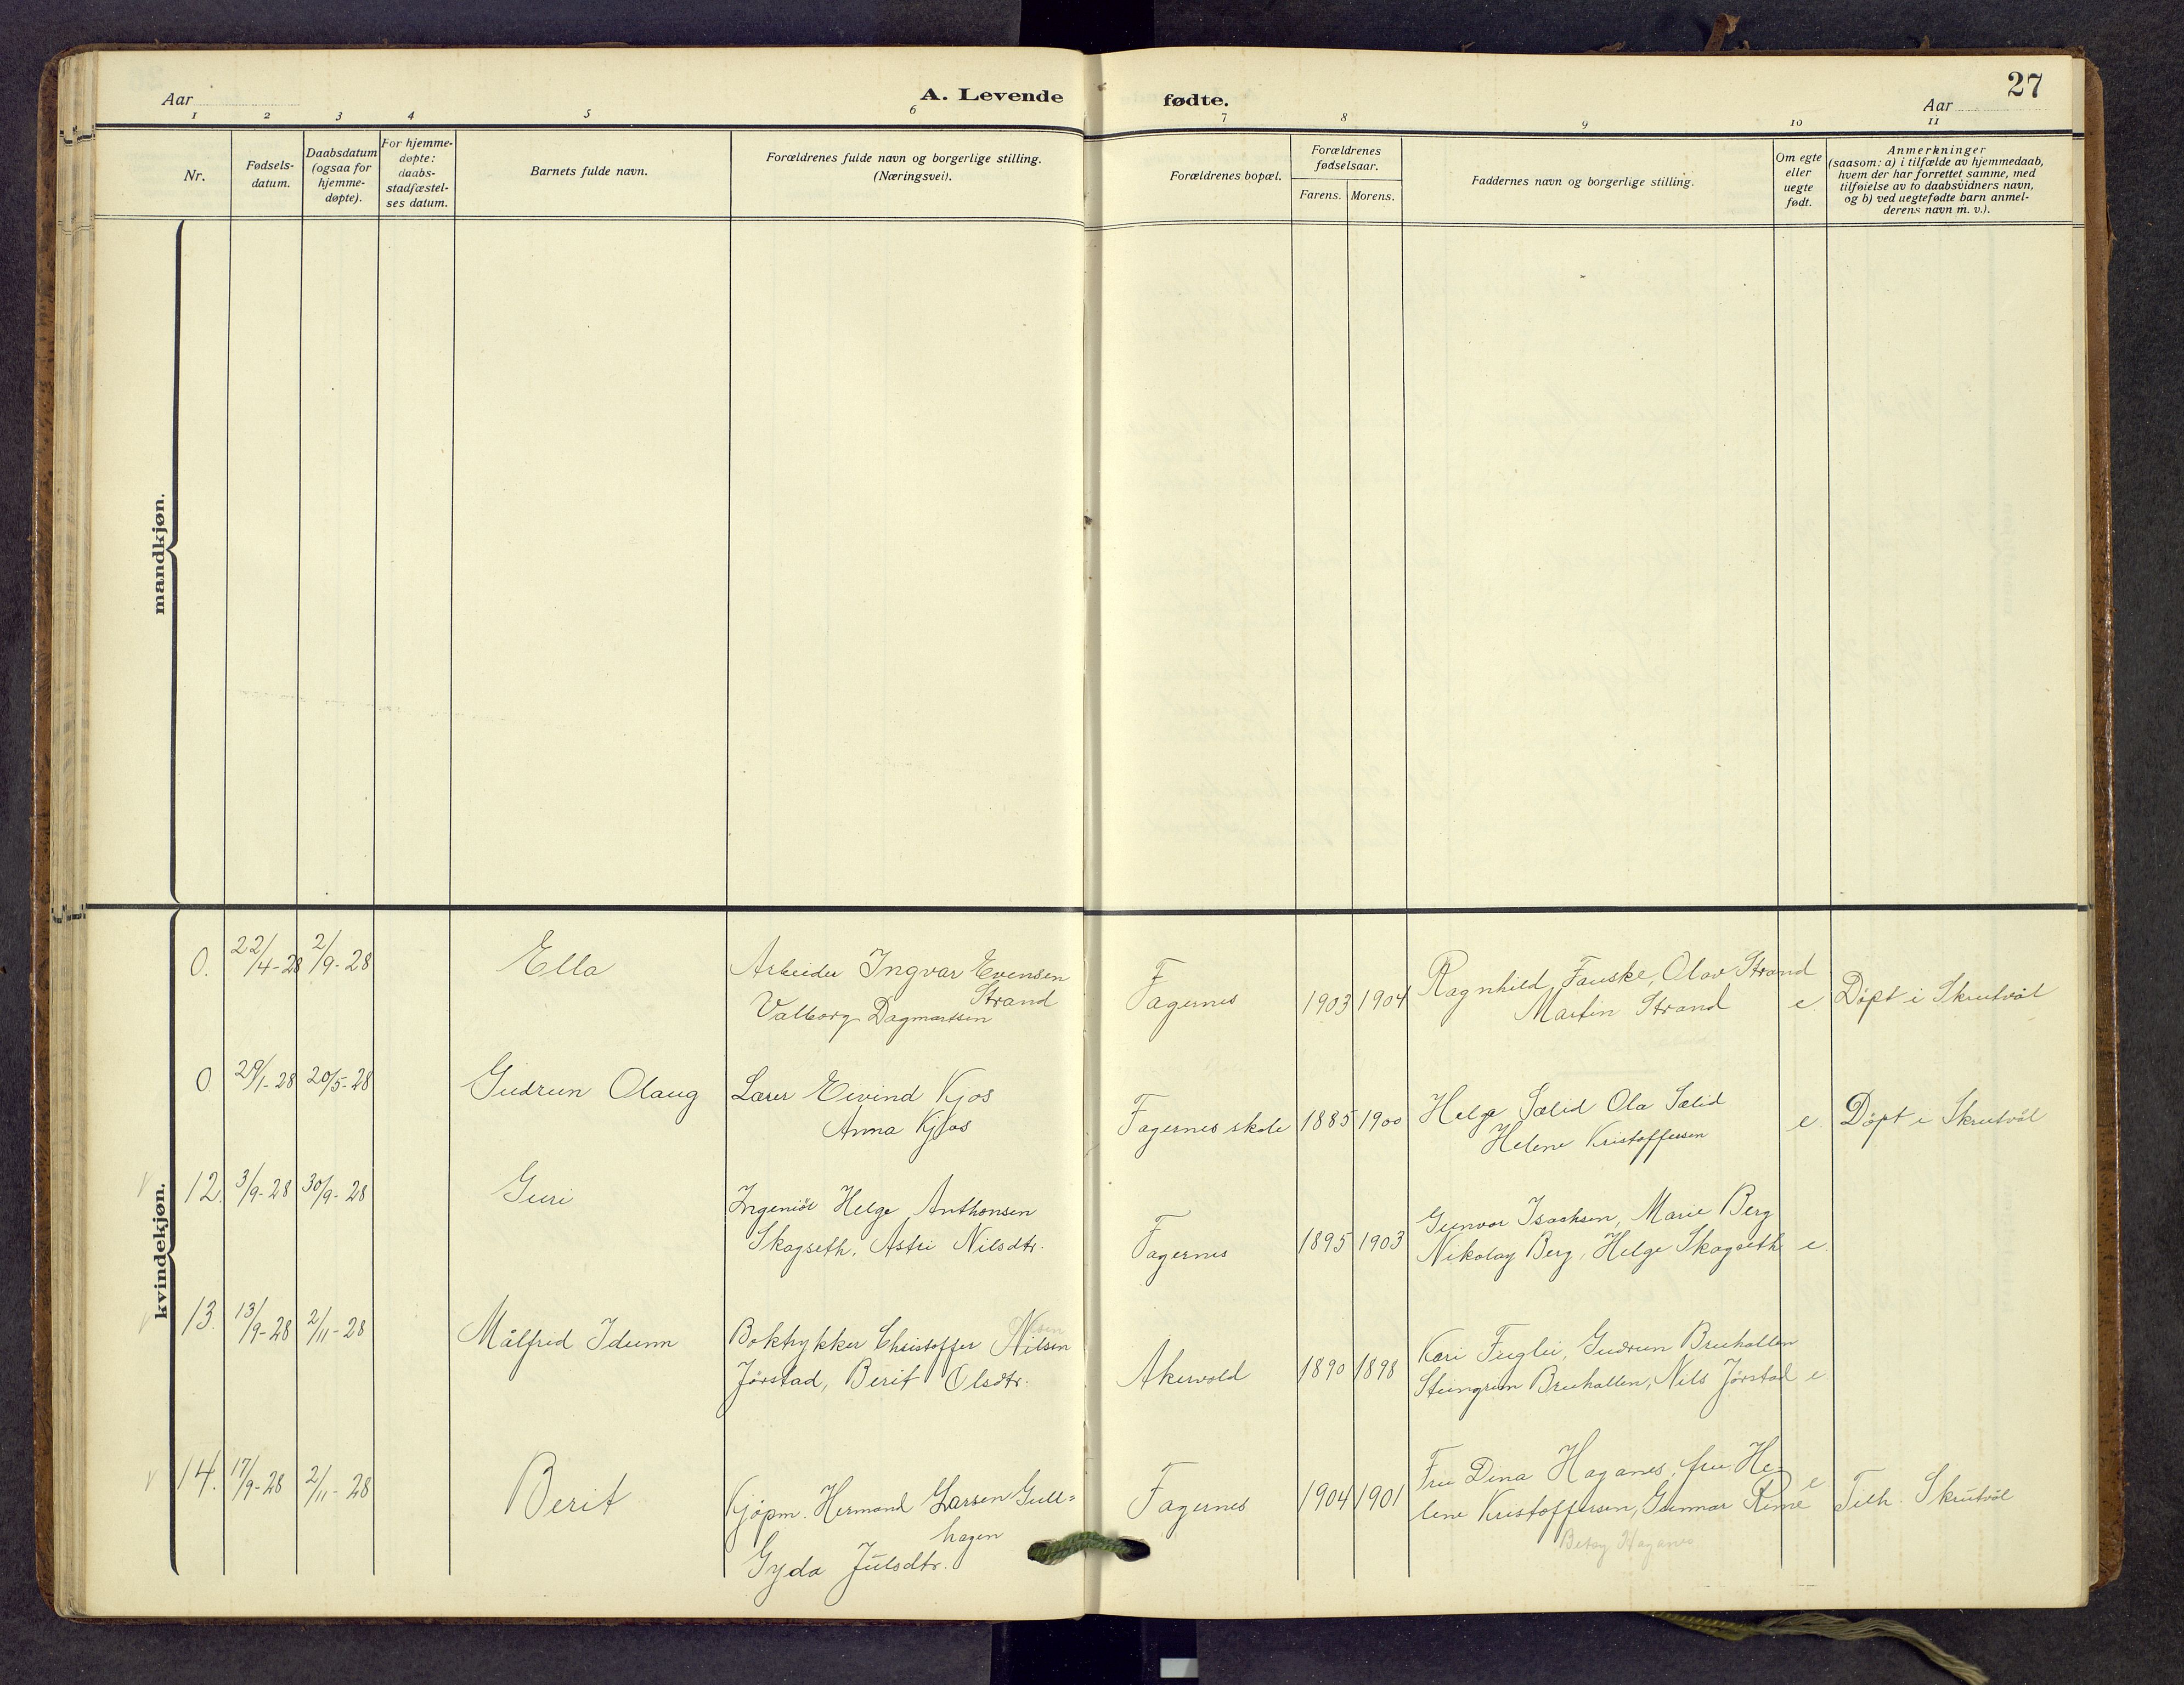 27
Aar
A. Levende
fødte.
Aar
1 2 3 4 5 6 7 8 9 10 11
Nr.
Fødsels-
datum.
Daabsdatum
(ogsaa for
hjemme-
døpte).
For hjemme-
døpte:
daabs-
stadfæstel-
ses datum.
Barnets fulde navn.
Forældrenes fulde navn og borgerlige stilling.
(Næringsvei).
Forældrenes bopæl.
Forældrenes
fødselsaar.
Farens. Morens.
Faddernes navn og borgerlige stilling.
Om egte
eller
uegte
født.
Anmerkninger
(saasom: a) i tilfælde av hjemmedaab,
hvem der har forrettet samme, med
tilføielse av to daabsvidners navn,
og b) ved uegtefødte barn anmel-
derens navn m. v.).
mandkjøn.
kvindekjøn.
0. 22/4-28 2/9-28 Ella
Arbeider Ingvar Evensen
Strand
Valborg Dagmartsen
Fagernes 1903 1904
Ragnhild Fauske, Olav Strand
Martin Strand
e. Døpt i Skrutvål
0 29/1-28 20/5-28 Gudrun Olaug
Lærer Eivind Kjos
Anna Kjos
Fagernes skole 1885 1900
Helge Sælid Ola Sælid
Helene Kristoffersen
e. Døpt i Skrutvål
V 12. 3/9-28 30/9-28 Guri
Ingeniør Helge Anthonsen
Skogseth, Astri Nilsdtr.
Fagernes 1895 1903
Gunvor Isachsen, Marie Berg
Nikolay Berg, Helge Skogseth e.
V 13. 13/9-28 2/11-28 Målfrid Idunn
Boktrykker Christoffer Nilsen
Jørstad, Berit Olsdtr.
Akervold 1890 1898
Kari Fuglei, Gudrun Bruhallen
Steingrim Bruhallen, Nils Jørstad e
V 14. 17/9-28 2/11-28 Berit
Kjøpm. Hermand Larsen Gull=
hagen
Gyda Julsdtr.
Fagernes 1904 1901
Fru Dina Haganes, fru He-
lene Kristoffersen, Gunnar Rime e
Betsy Haganes
Tilh. Skrutvål